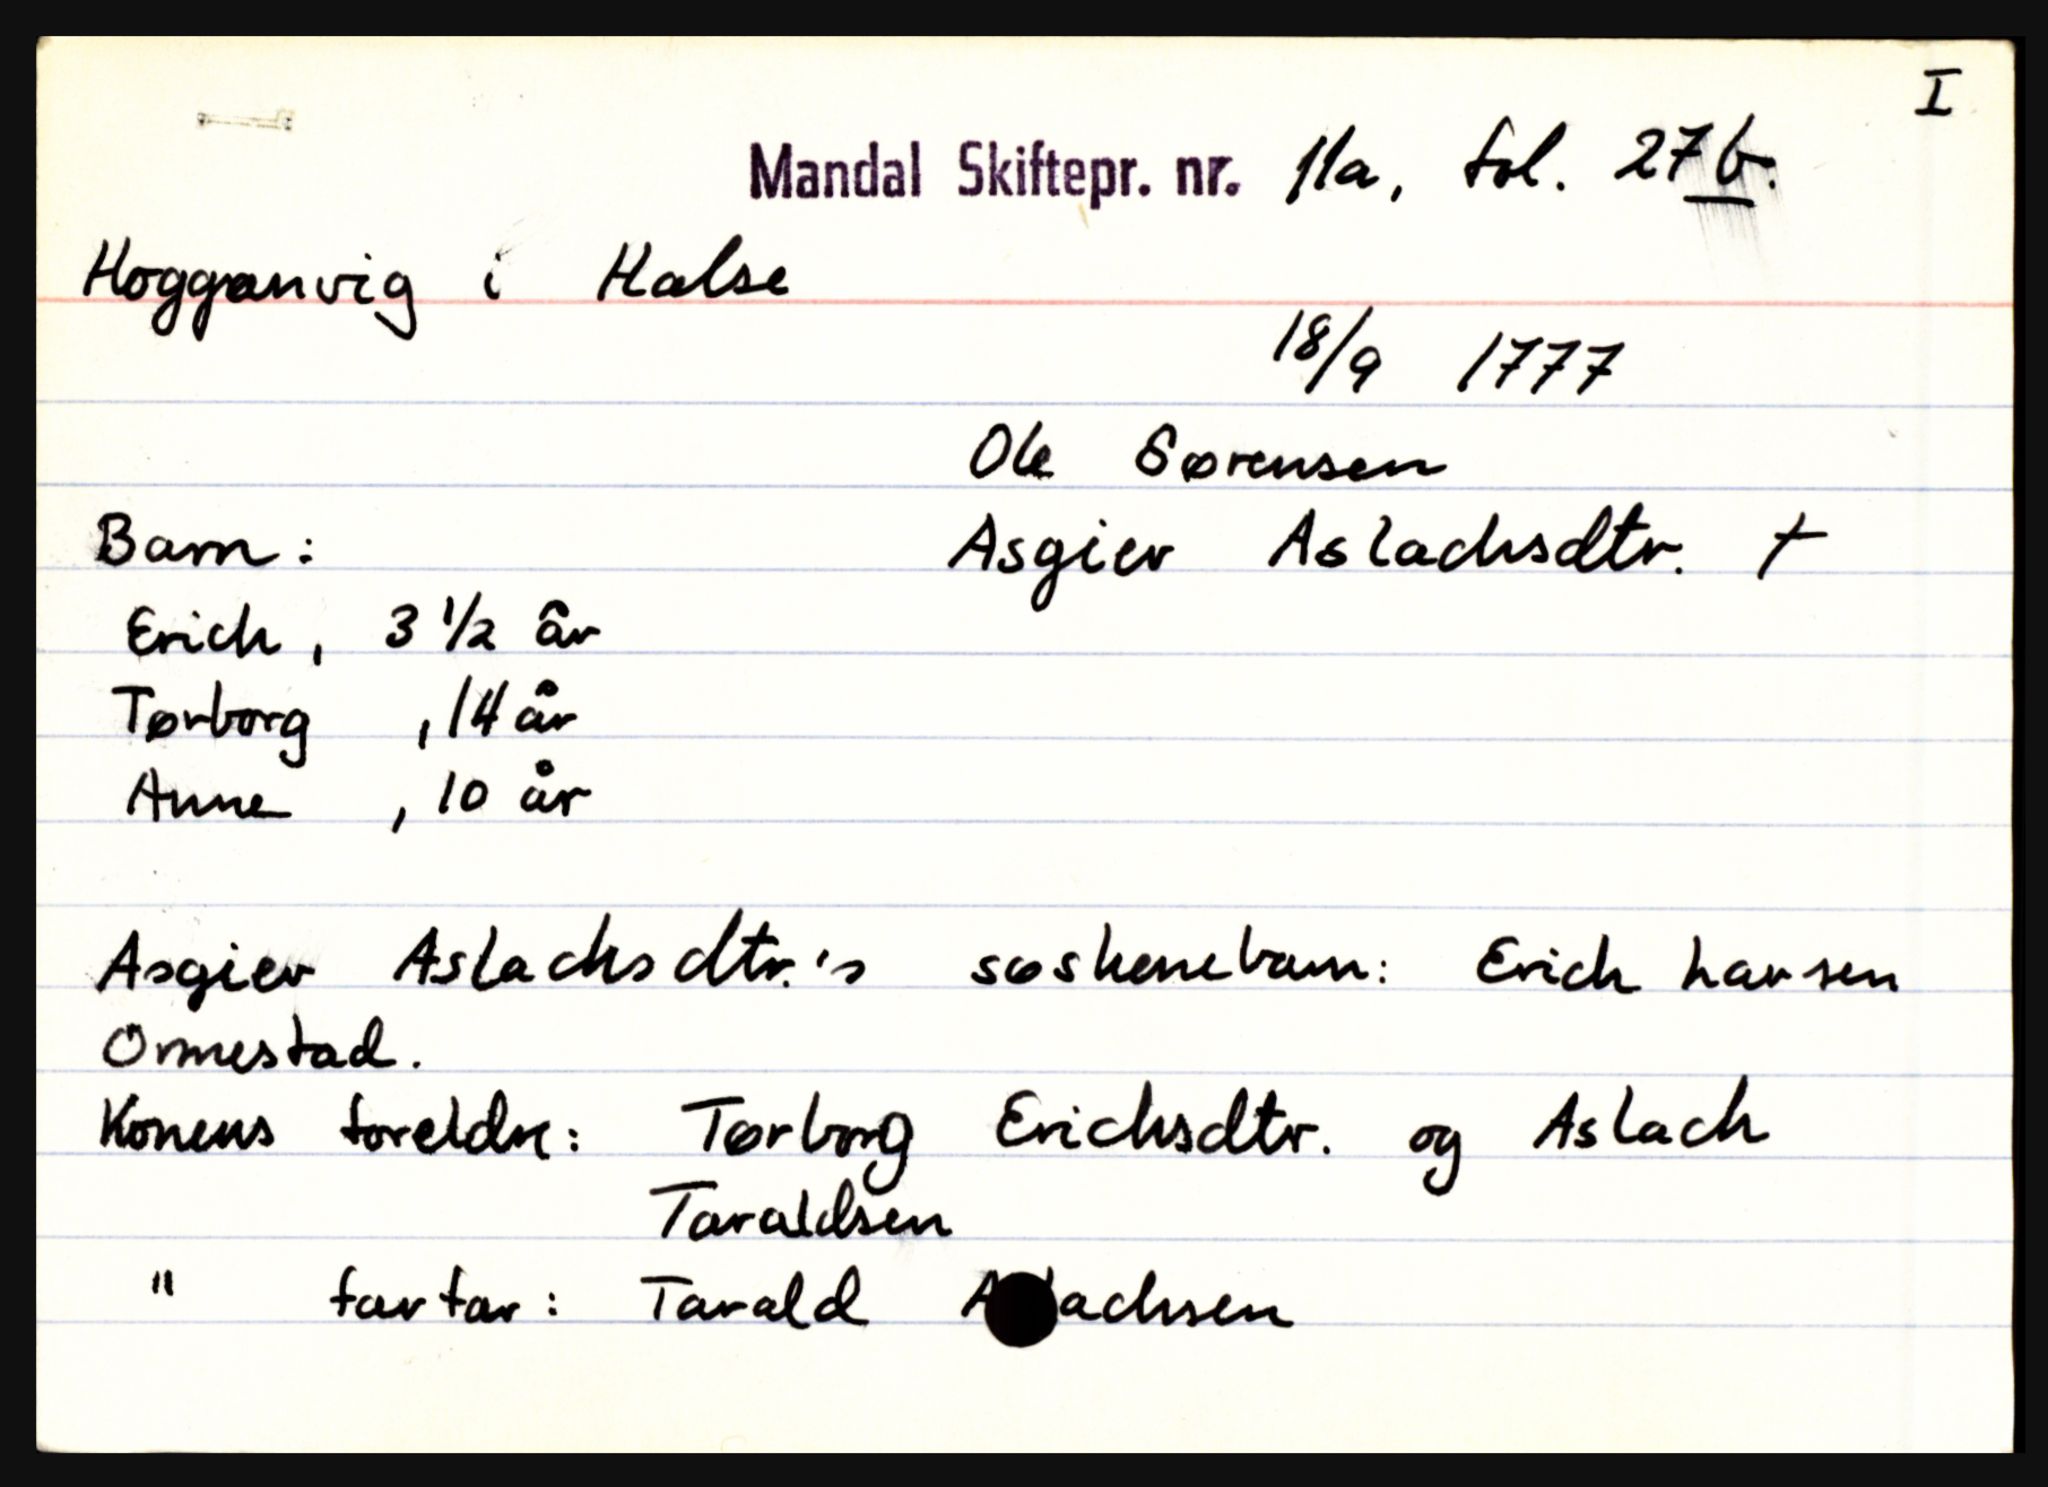 I
Mandal Skiftepr. nr. 11a, fol. 27b.
Hogganvig i Halse
18/9 1777
Ole Sørensen
Barn: Asgier Aslachsdtr. †
Erich, 3 1/2 år
Tørborg, 14 år
Anne, 10 år
Asgier Aslachsdtr.'s søskenebarn: Erich hansen
Ormestad.
Konens foreldre: Tørborg Erichsdtr. og Aslach
Taraldsen
" farfar: Tarald Aslachsen